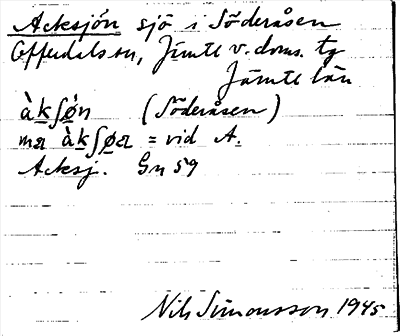 Acksjön sjö i Söderåsen
Offerdals sn, Jämtl v. doms. tg
Jämtl län
àkʃø̀n (Söderåsen)
mɑ àkʃøɑ = vid A.
Acksj. Gn 59
Nils Simonsson 1945